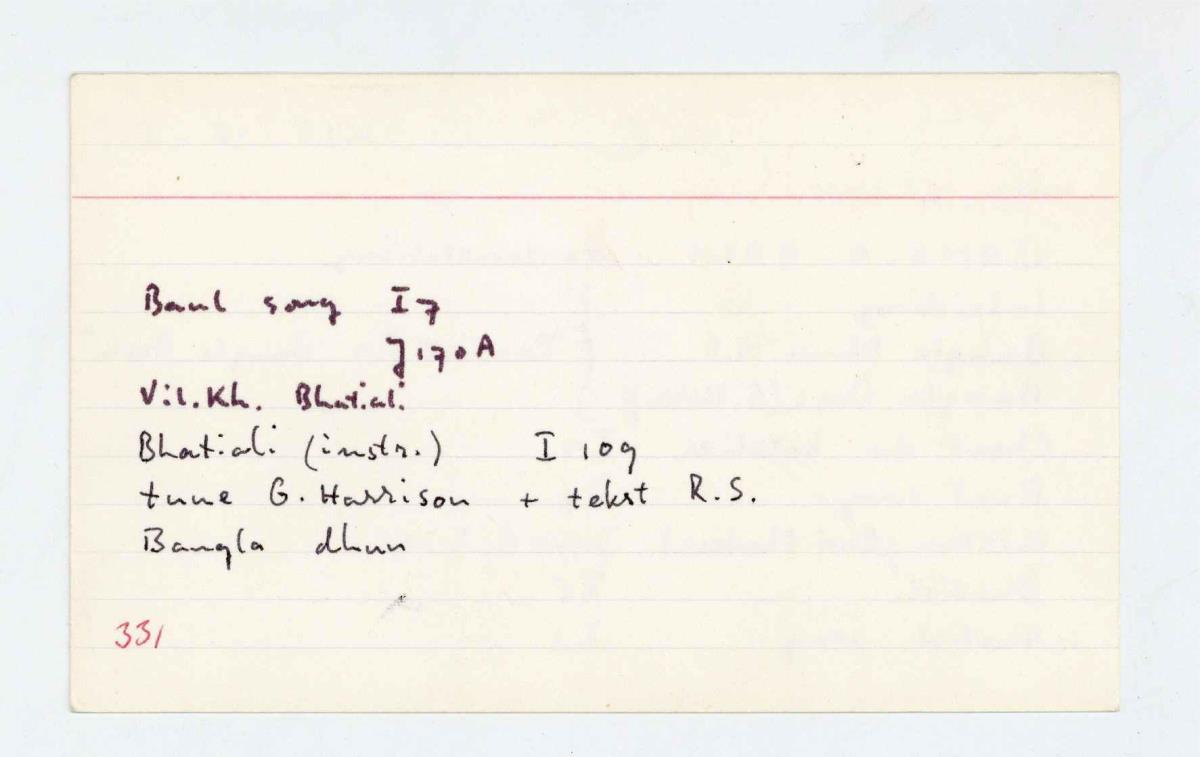 Baul song I 7
J 170 A
Vil.Kh. Bhatiali
Bhatiali (instr.) I 109
tune G. Harrison + tekst R.S.
Bangla dhun
331